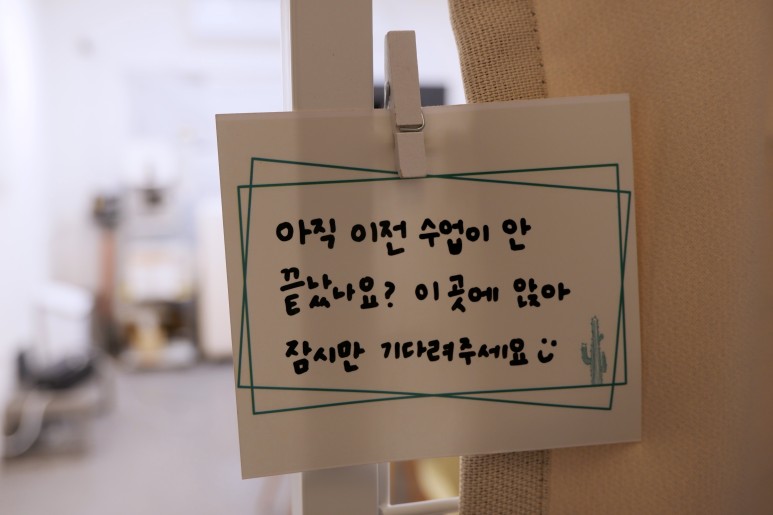 아직 이전 수업이 안
끝났나요? 이 곳에 앉아
잠시만 기다려주세요